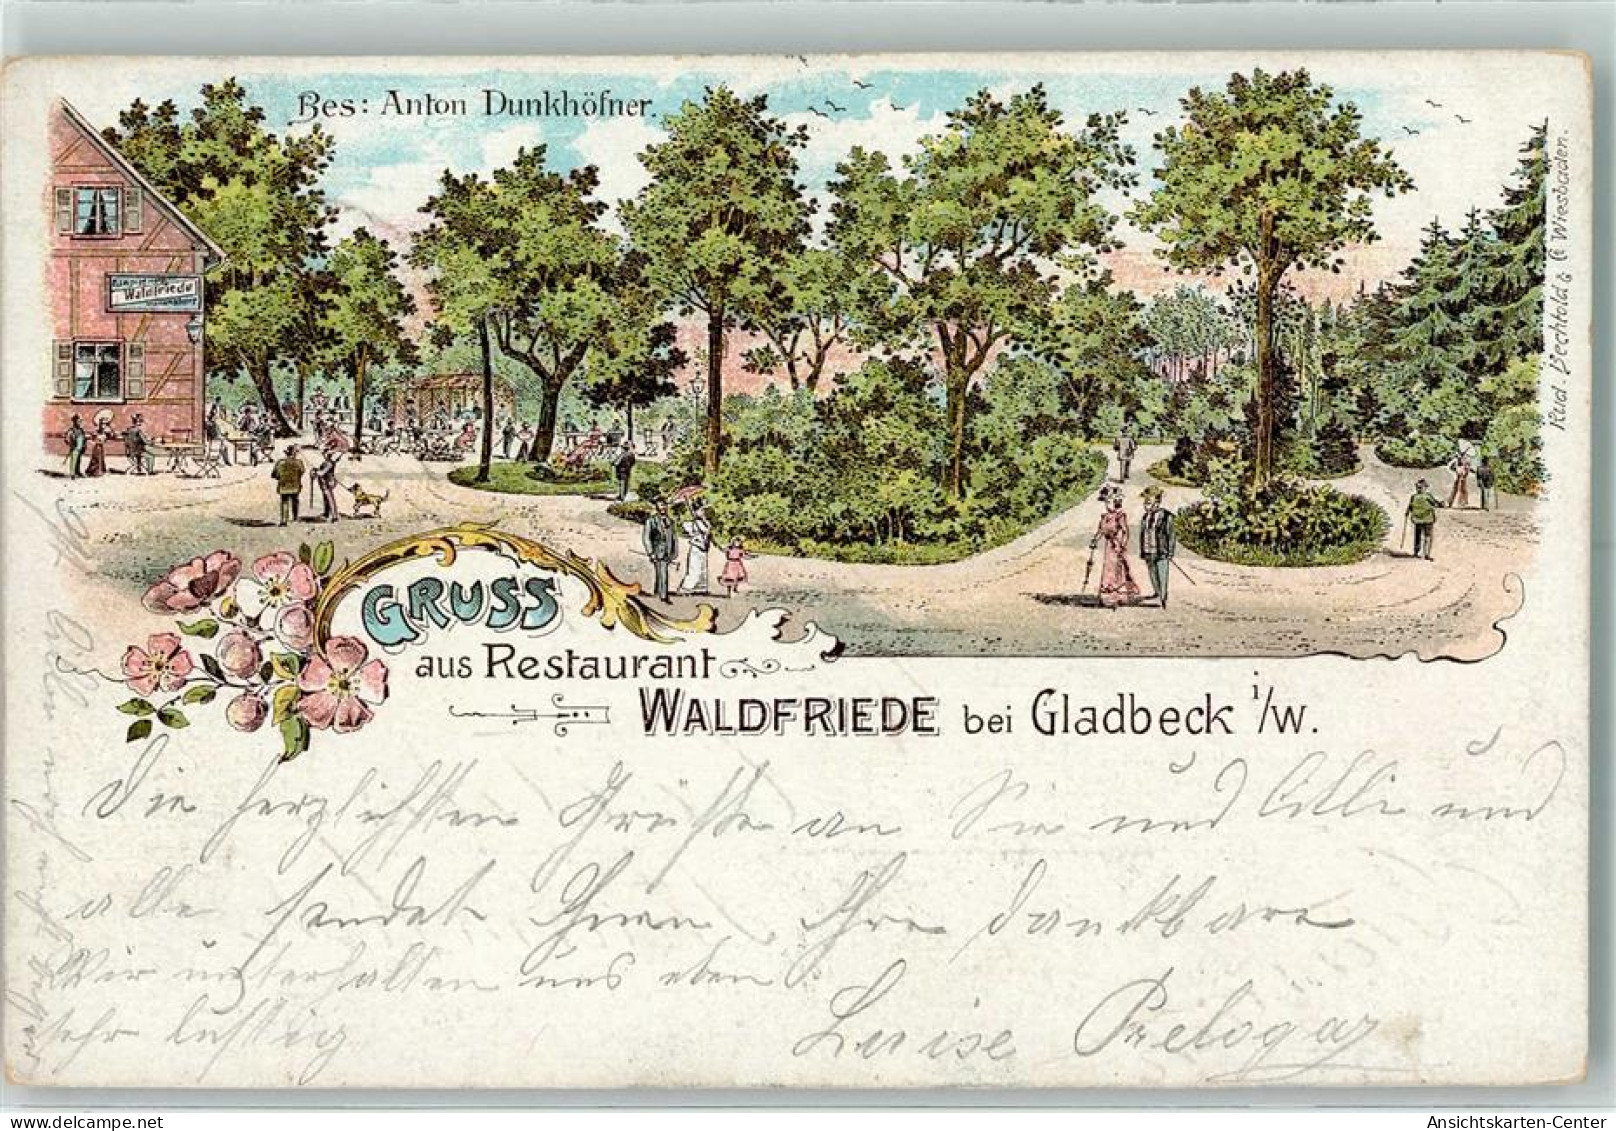 Bes: Anton Dunkhöfner.
Waldfriede
Rud. Bechtold & Co Wiesbaden.
GRUSS
aus Restaurant
WALDFRIEDE bei Gladbeck i/W.
Die herzlichsten Grüße an Sie und Cilli und
alle sendet Ihnen, Ihre dankbare
Wir unterhalten uns eben
sehr lustig
Luise
Ansichtskarten-Center